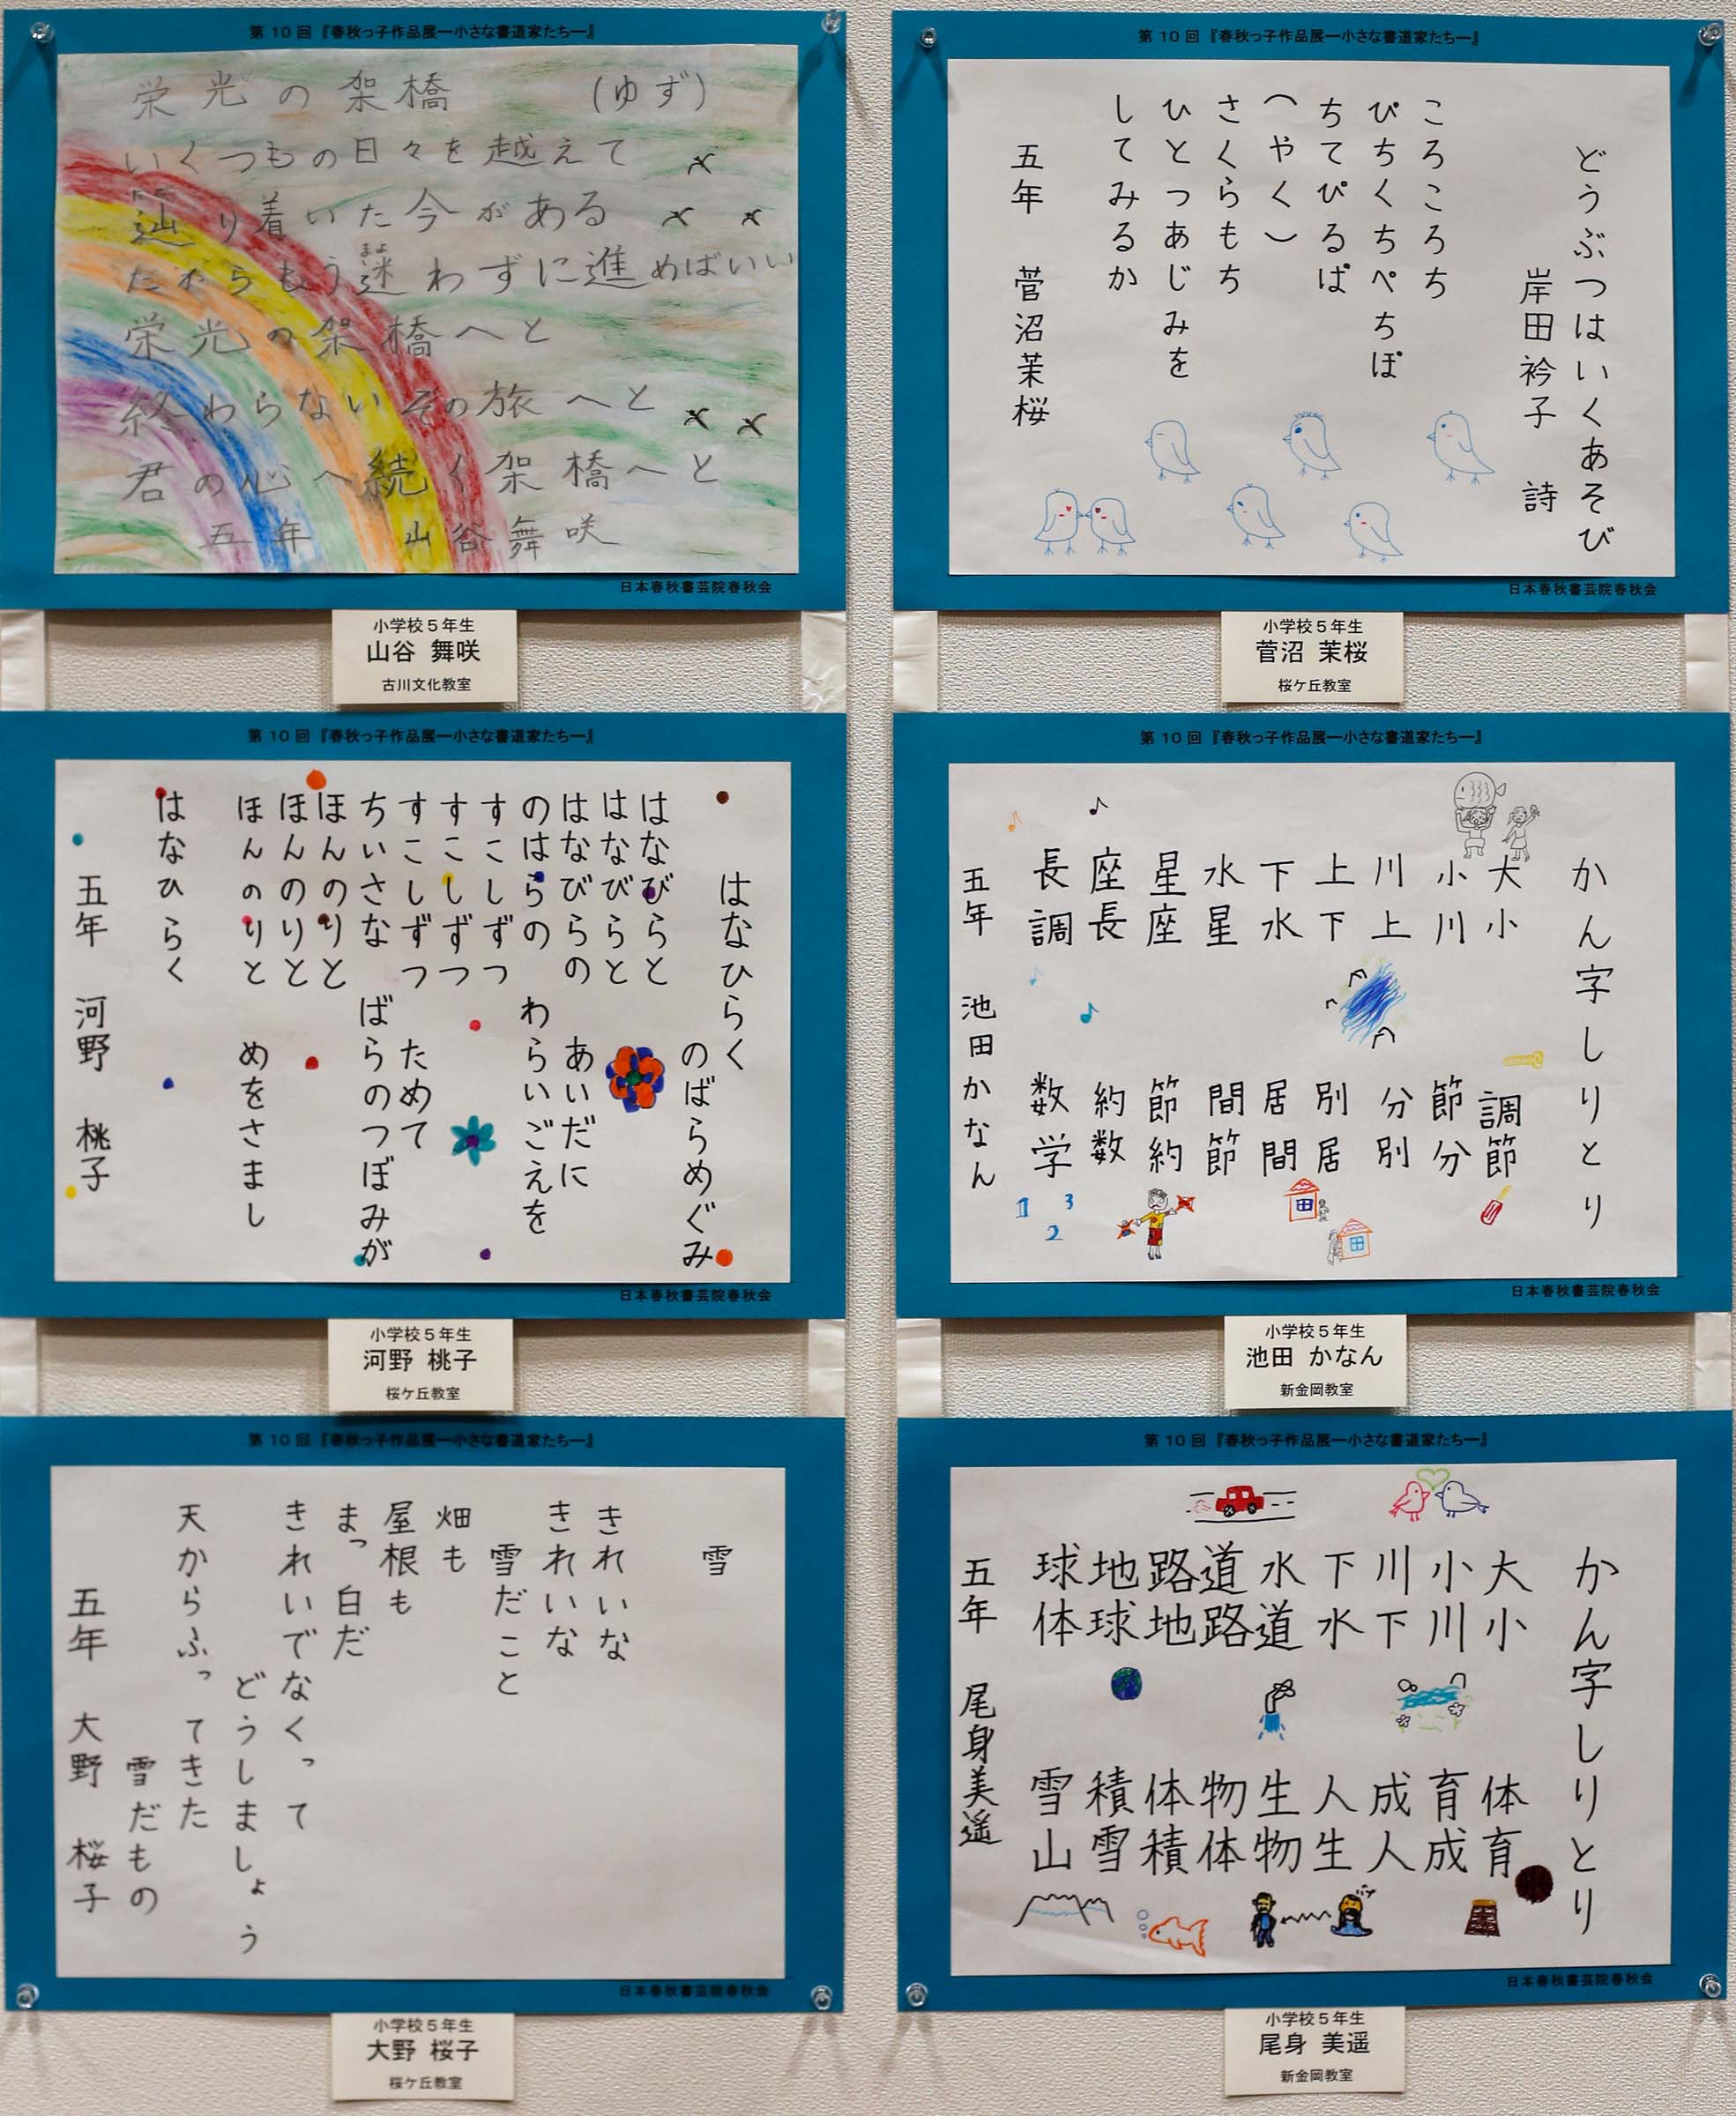 第10回『春秋っ子作品展―小さな書道家たち―』
栄光の架橋 (ゆず)
いくつもの日々を越えて
辿り着いた今がある
だからもう迷わずに進めばいい
まよ
栄光の架橋へと
終わらないその旅へと
君の心へ続く架橋へと
五年 山谷舞咲
日本春秋書芸院春秋会
小学校5年生
山谷 舞咲
古川文化教室
第10回『春秋っ子作品展―小さな書道家たち―』
どうぶつはいくあそび
岸田衿子 詩
ころころち
ぴちくちぺちぽ
ちてぴるぱ
(やく)
さくらもち
ひとつあじみを
してみるか
五年 菅沼茉桜
日本春秋書芸院春秋会
小学校5年生
菅沼 茉桜
桜ケ丘教室
第10回『春秋っ子作品展―小さな書道家たち―』
はなひらく
のばらめぐみ
はなびらと
はなびらと
はなびらの あいだに
のはらの わらいごえを
すこしずつ
すこしずつ
すこしずつ ためて
ちいさな ばらのつぼみが
ほんのりと
ほんのりと
ほんのりと めをさまし
はなひらく
五年 河野 桃子
日本春秋書芸院春秋会
小学校5年生
河野 桃子
桜ケ丘教室
第10回『春秋っ子作品展―小さな書道家たち―』
かん字しりとり
大小
小川
川上
上下
下水
水星
星座
座長
長調
調節
節分
分別
別居
居間
間節
節約
約数
数学
1 2 3
五年 池田かなん
日本春秋書芸院春秋会
小学校5年生
池田 かなん
新金岡教室
第10回『春秋っ子作品展―小さな書道家たち―』
雪
きれいな
きれいな
雪だこと
畑も
屋根も
まっ白だ
きれいでなくって
どうしましょう
天からふってきた
雪だもの
五年 大野 桜子
日本春秋書芸院春秋会
小学校5年生
大野 桜子
桜ケ丘教室
第10回『春秋っ子作品展―小さな書道家たち―』
かん字しりとり
大小
小川
川下
下水
水道
道路
路地
地球
球体
体育
育成
成人
人生
生物
物体
体積
積雪
雪山
五年 尾身美遥
日本春秋書芸院春秋会
小学校5年生
尾身 美遥
新金岡教室